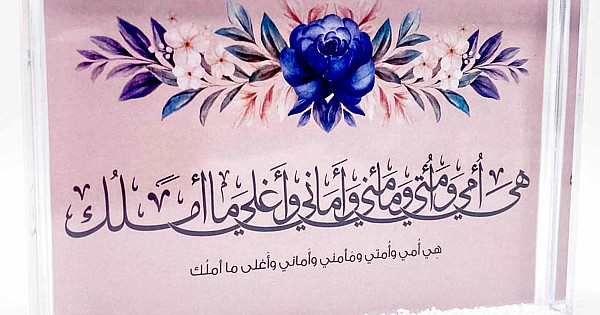 هي أمي ومأمتي ومأمني وأماني وأغلى ما أملك
هِي أمي وأمتي ومَأمني وأماني وأغلى ما أملُك